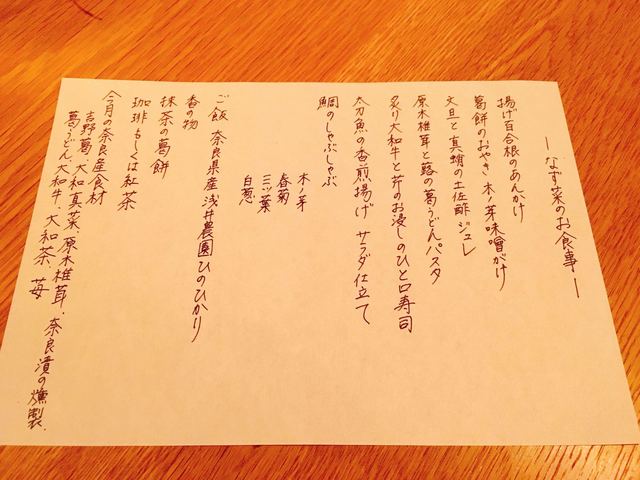 ーなず菜のお食事ー
揚げ百合根のあんかけ
葛餅のおやき 木ノ芽味噌がけ
文旦と真蛸の土佐酢ジュレ
原木椎茸と蕗の葛うどんパスタ
炙り大和牛と芹のお浸しのひと口寿司
太刀魚の香煎揚げ サラダ仕立て
鯛のしゃぶしゃぶ
木ノ芽
春菊
三ツ葉
白葱
ご飯 奈良県産浅井農園ひのひかり
香の物
抹茶の葛餅
珈琲もしくは紅茶
今月の奈良産食材
吉野葛、大和真菜、原木椎茸、奈良漬の燻製、
葛うどん、大和牛、大和茶、苺